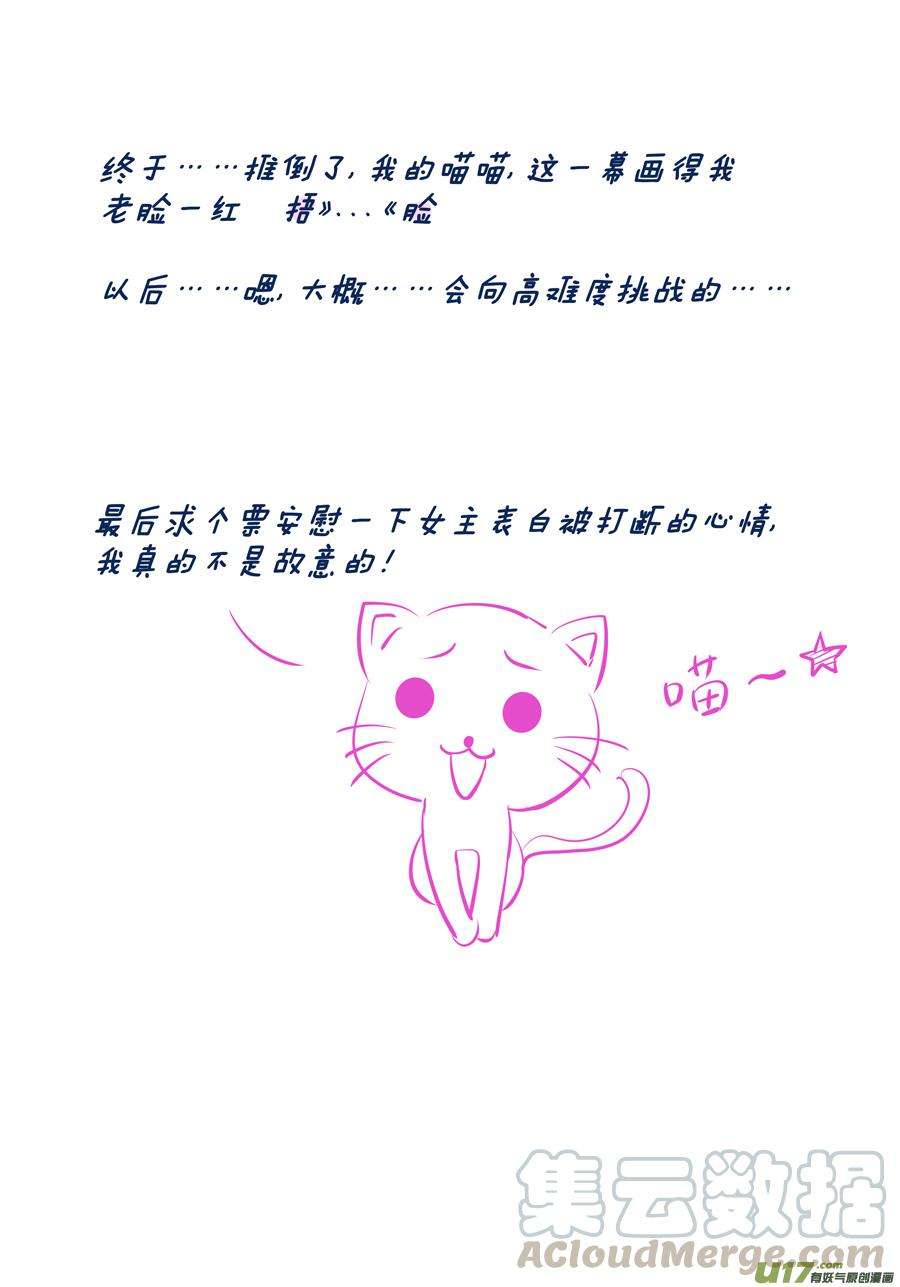 终于……推倒了，我的喵喵，这一幕画得我
老脸一红 捂》...《脸
以后……嗯，大概……会向高难度挑战的……
最后求个票安慰一下女主表白被打断的心情，
我真的不是故意的！
喵~☆
集云数据
ACloudMerge.com
U17.com
有妖气原创漫画